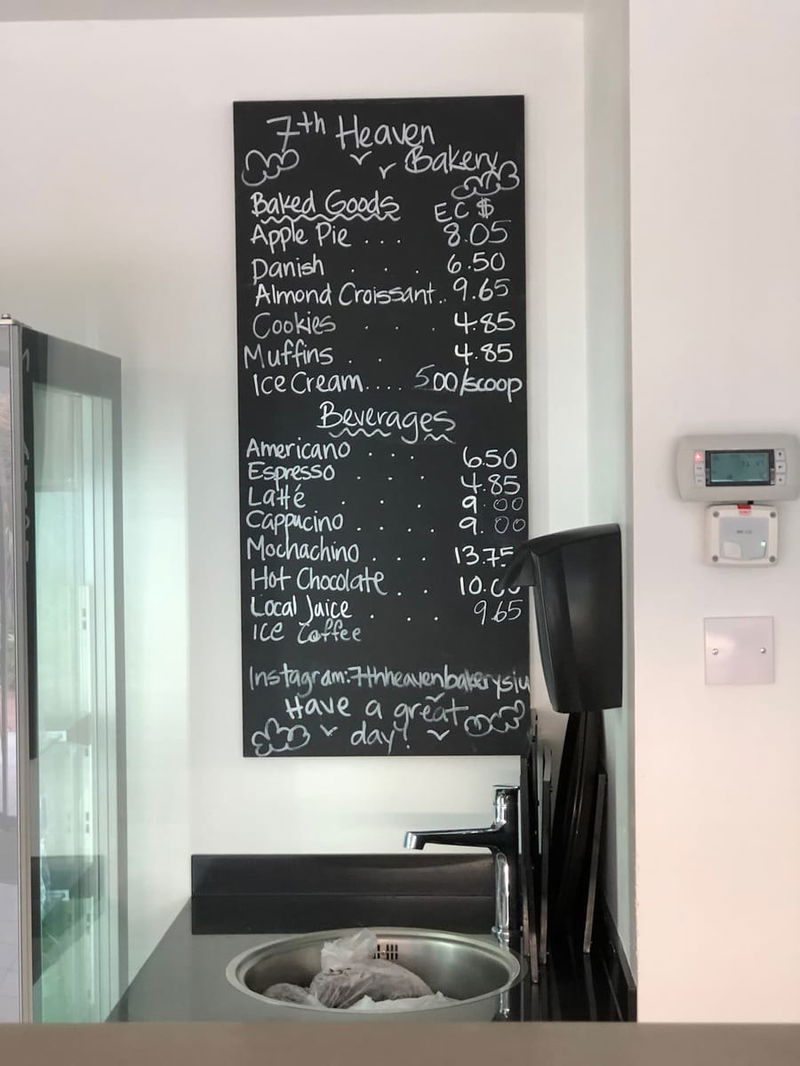 7th Heaven
Bakery
Baked Goods EC $
Apple Pie ... 8.05
Danish . . . 6.50
Almond Croissant.. 9.65
Cookies . . . 4.85
Muffins . . 4.85
Ice Cream.... 500/scoop
Beverages
Americano . . . 6.50
Espresso . . . 4.85
Latté . . . 9.00
Cappucino . . . . 9.00
Mochachino . . . 13.75
Hot Chocolate . . 10.00
Local Juice . . . 9.65
ICE Coffee
Instagram:7thheavenbakerysiu
Have a great
day!